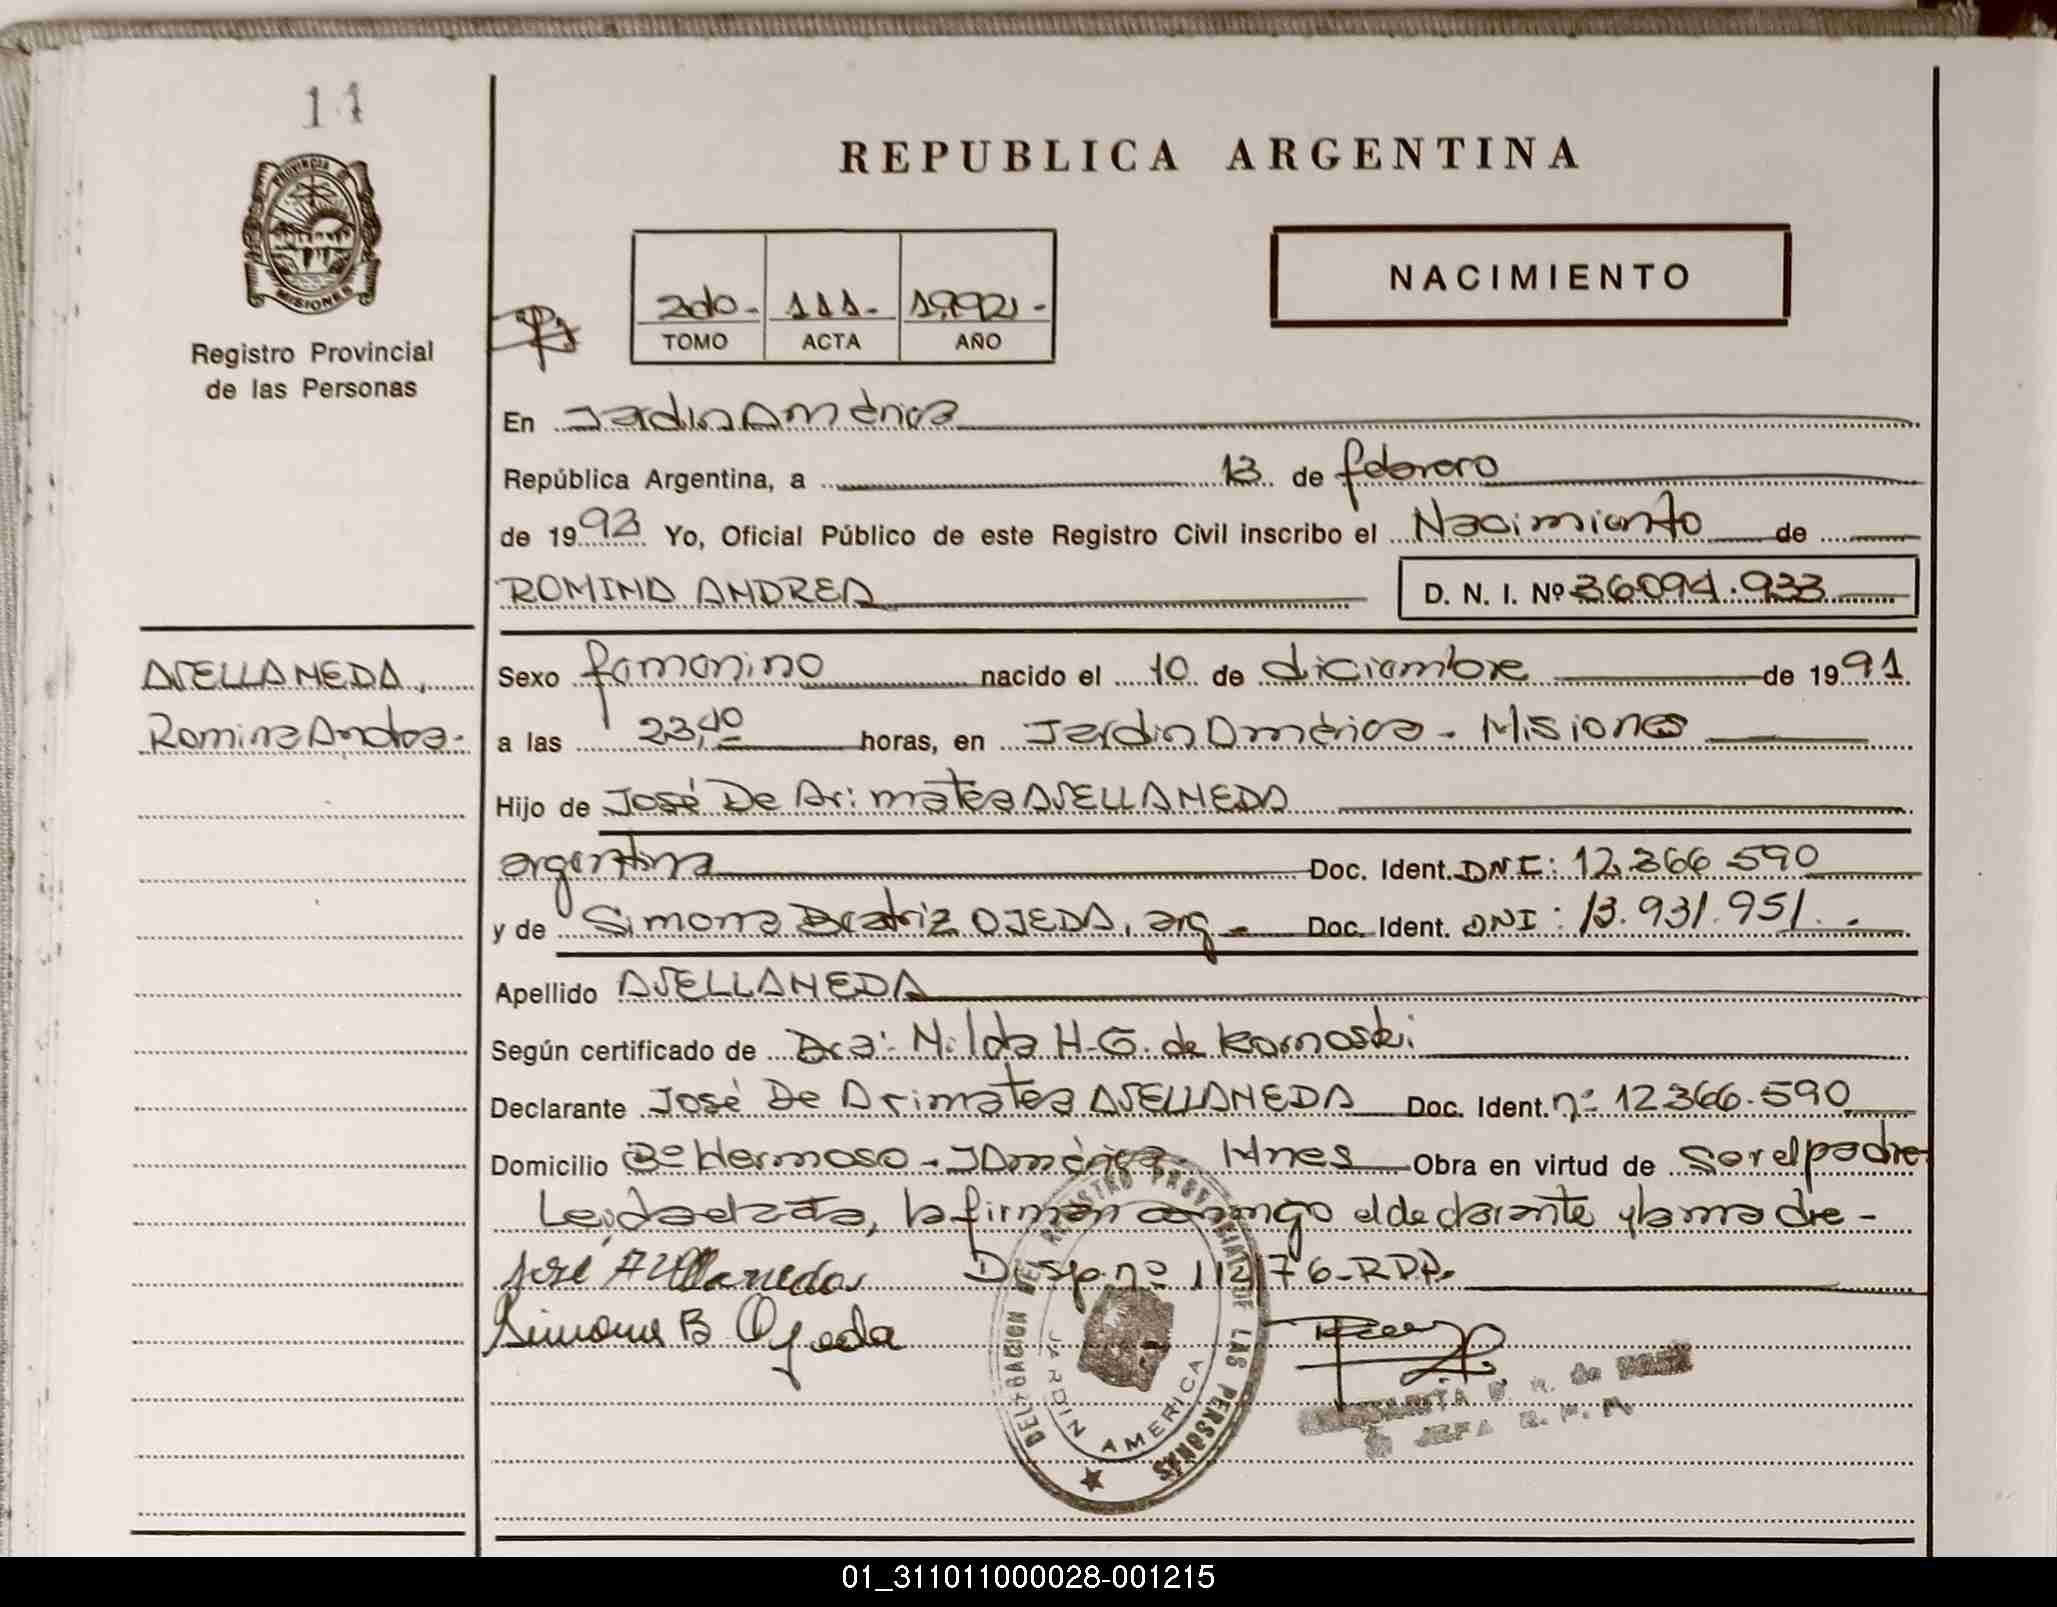 11
REPUBLICA ARGENTINA
PROVINCIA DE
MISIONES
Registro Provincial
de las Personas
NACIMIENTO
2do- 111- 1992-
TOMO ACTA AÑO
En Jardin América
República Argentina, a 13 de febrero
de 1992 Yo, Oficial Público de este Registro Civil inscribo el Nacimiento de
ROMINA ANDREA D. N. I. Nº 36094.933
AVELLANEDA,
Romina Andrea-
Sexo femenino nacido el 10 de diciembre de 1991
a las 23,40 horas, en Jardin América - Misiones
Hijo de José De Arimatea AVELLANEDA
argentina Doc. Ident. DNI: 12.366.590
y de Simona Beatriz OJEDA, arg- Doc. Ident. DNI: 13.931.951.
Apellido AVELLANEDA
Según certificado de Dra: Nilda H.G. de Kornoski
Declarante José De Arimatea AVELLANEDA Doc. Ident. nº 12366.590
Domicilio Bº Hermoso - J América- Mnes Obra en virtud de ser el padre
Leida el acta, la firman conmigo el declarante y la madre-
José Avellaneda Disp. nº 112/76-RPP.
Simona B Ojeda
DELEGACION DEL REGISTRO PROVINCIAL DE LAS PERSONAS
JARDIN AMERICA
JEFA R. P. P.
01_311011000028-001215